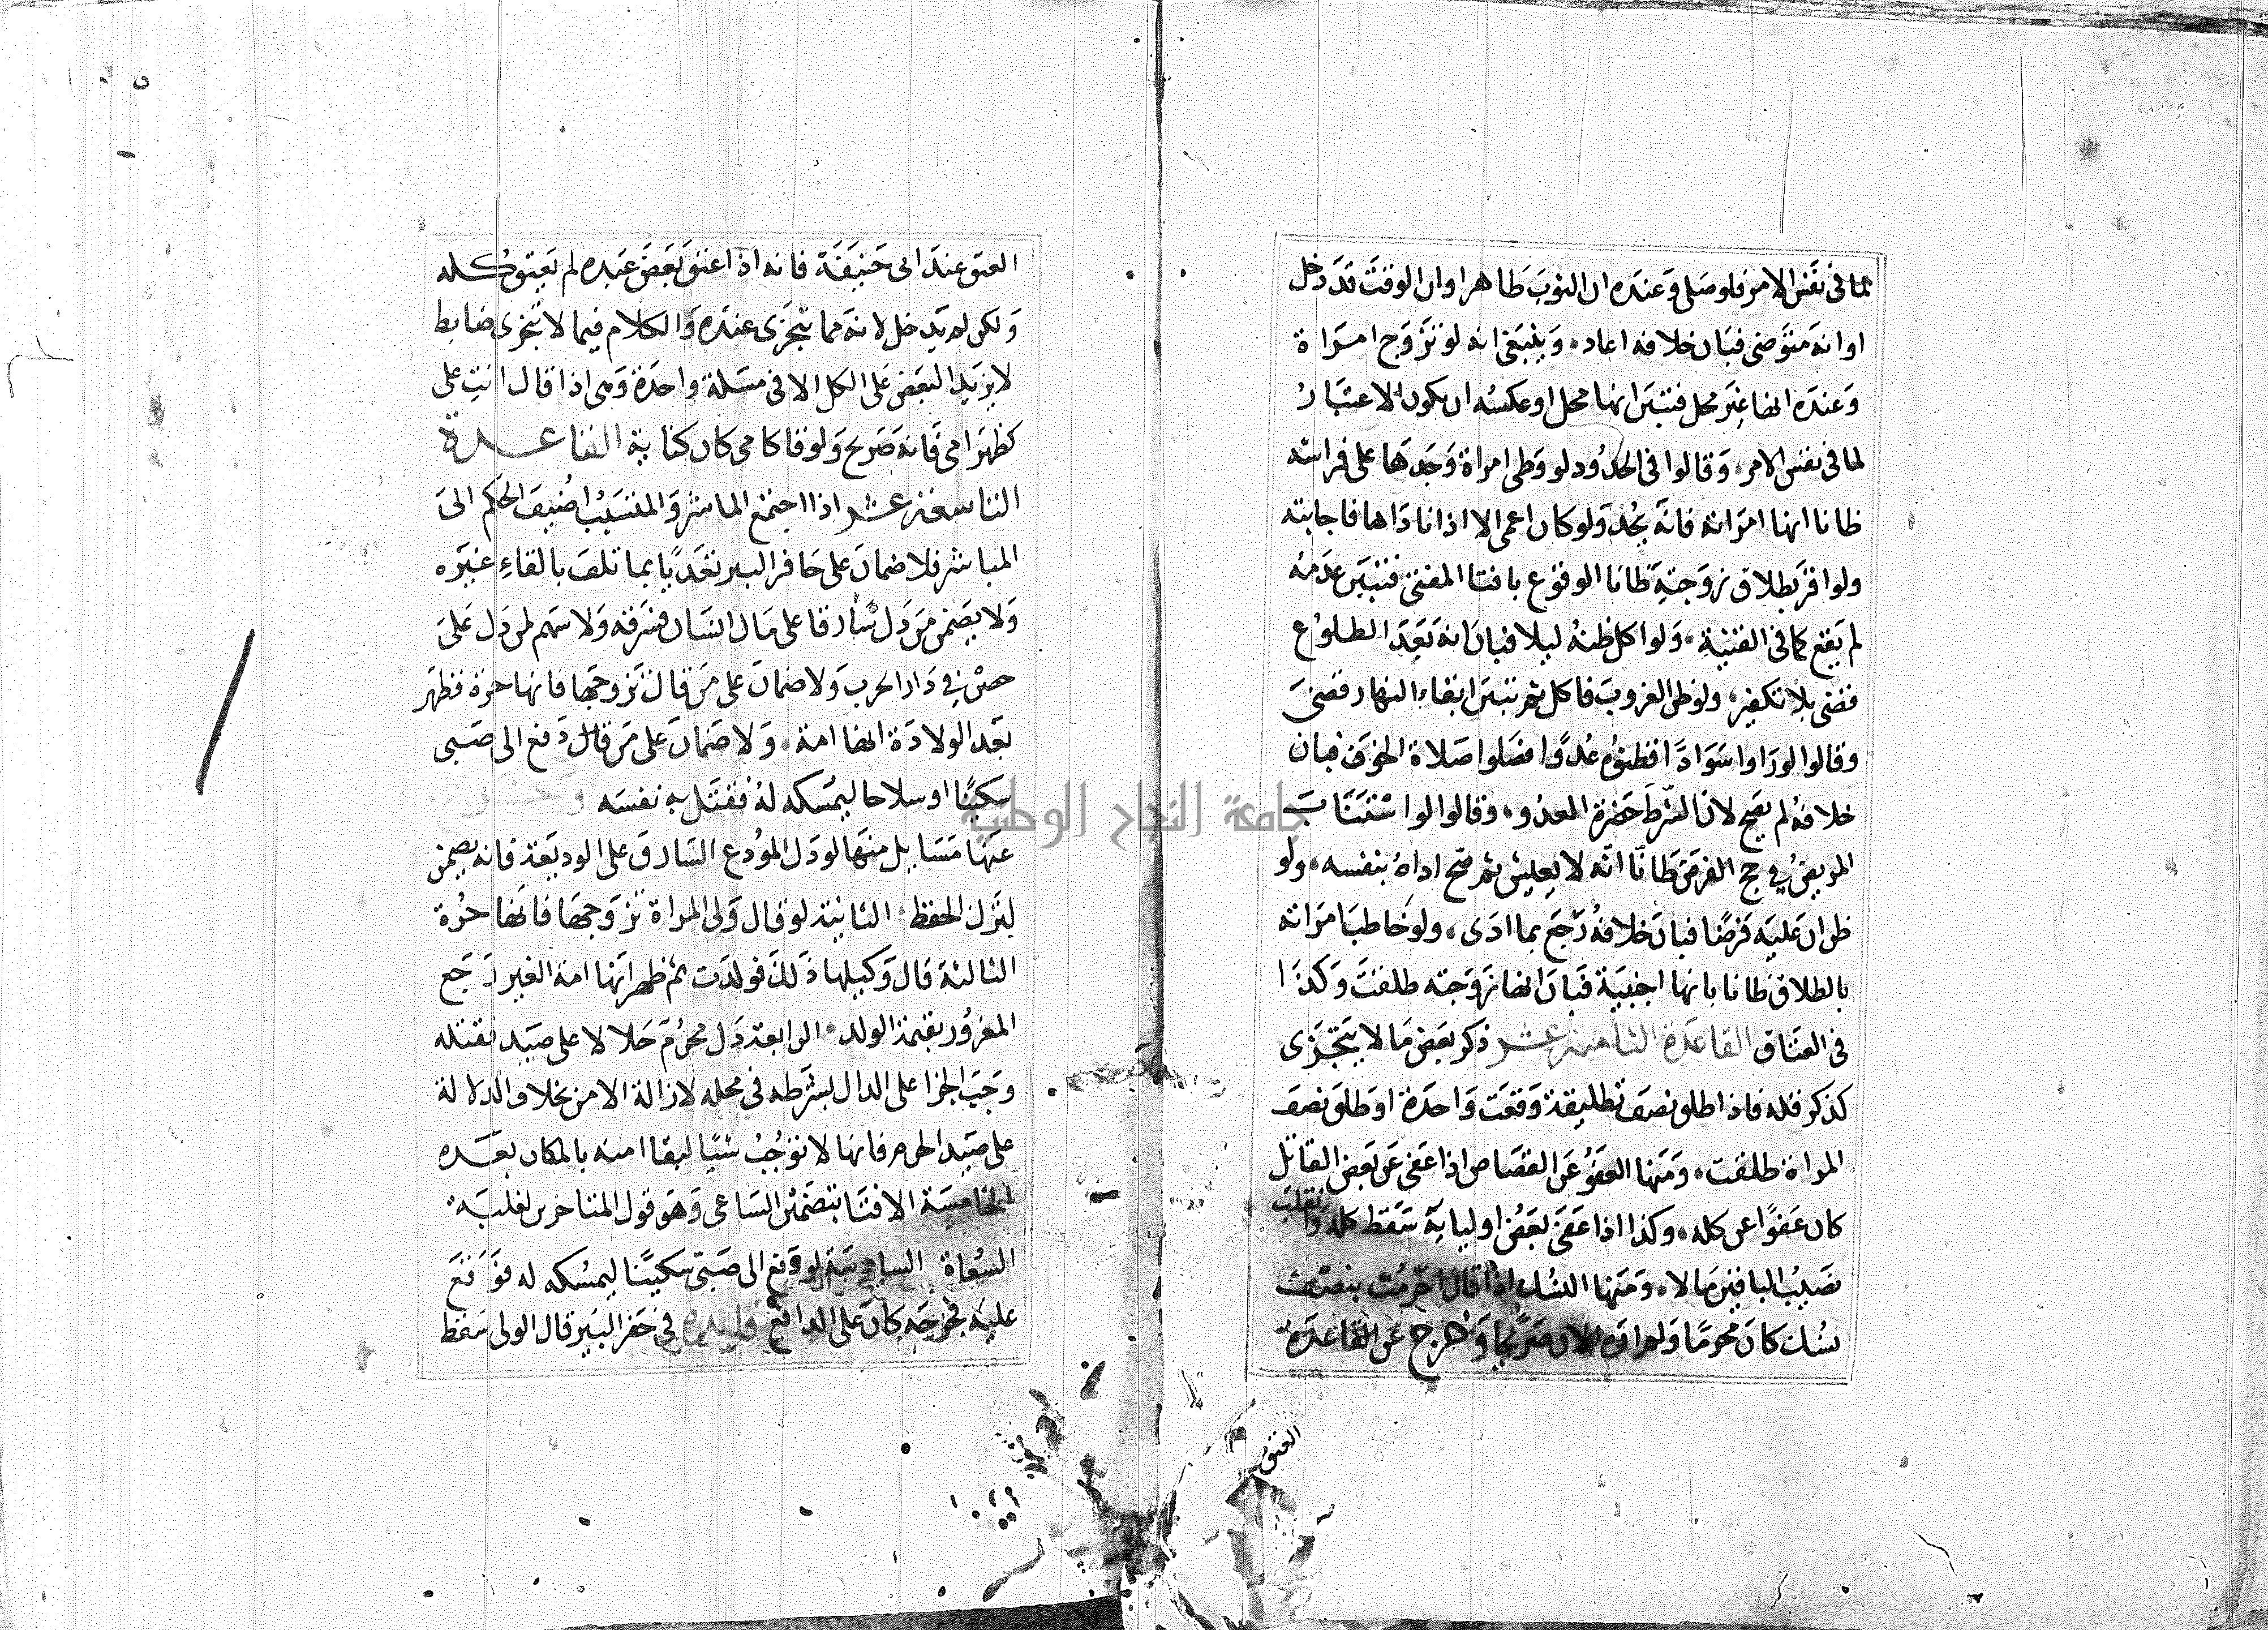 لما في نفس الامر فلو صلى وعنده ان الثوب طاهر او ان الوقت قد دخل
او انه متوضي فبان خلافه اعاد وينبغي انه لو تزوج امراة
وعنده انها غير محل فتبين انها محل او عكسه ان يكون الاعتبار
لما في نفس الامر وقالوا في الحدود لو وطى امراة وجدها على فراشه
ظانا انها امراته فانه يحد ولو كان اعمى الا اذا ناداها فاجابته
ولو اقر بطلاق زوجته ظانا الوقوع بافتا المفتي فتبين عدمه
لم يقع كما في القنية ولو اكل ظنه ليلا فبان انه بعد الطلوع
قضى بلا تكفير ولو ظن الغروب فاكل ثم تبين ابقاء النهار قضى
وقالوا لو راوا سوادا فظنوه عدوا فصلوا صلاة الخوف فبان
خلافه لم يصح لان الشرط حضرة العدو وقالوا لو استناب
المريض في حج الفرض ظانا انه لا يعيش ثم صح اداه بنفسه ولو
ظن ان عليه فرضا فبان خلافه رجع بما ادى ولو خاطب امراته
بالطلاق ظانا بانها اجنبية فبان انها زوجته طلقت وكذا
في العتاق القاعدة الثامنة عشر ذكر بعض ما لا يتجزى
كذكر كله فاذا طلق نصف تطليقة وقعت واحدة او طلق نصف
المراة طلقت ومنها العفو عن القصاص اذا عفى عن بعض القاتل
كان عفوا عن كله وكذا اذا عفى بعض اوليايه سقط كله وانقلب
نصيب الباقين مالا ومنها النسك اذا قال احرمت بنصف
نسك كان محرما ولم اره الان صريحا وخرج عن القاعدة
العتق
العتق عند ابى حنيفة فانه اذا اعتق بعض عبده لم يعتق كله
ولكن لم يدخل لانه مما يتجزى عنده والكلام فيما لا يتجزى ضابط
لا يزيد البعض على الكل الا في مسلة واحدة وهى اذا قال انت على
كظهر امى فانه صريح ولو قا كامى كان كناية القاعدة
التاسعة عشر اذا اجتمع المباشر والمتسبب اضيف الحكم الى
المباشر فلا ضمان على حافر البير تعديا بما تلف بالقاء غيره
ولا يضمن من دل سارقا على مال انسان فسرقه ولا سهم لمن دل على
حصن في دار الحرب ولا ضمان على من قال تزوجها فانها حرة فظهر
بعد الولادة انها امة ولا ضمان على من دفع الى صبى
سكينا او سلاحا ليمسكه له فقتل به نفسه وخرج
عنها مسايل منها لو دل المودع السارق على الوديعة فانه يضمن
لترك الحفظ الثانية لو قال ولى المراة تزوجها فانها حرة
الثالثة قال وكيلها ذلك فولدت ثم ظهر انها امة الغير رجع
المغرور بقيمة الولد الرابعة دل محرم حلالا على صيد فقتله
وجب الجزا على الدال بشرطه في محله لازالة الامن بخلاف الدلالة
على صيد الحرم فانها لا توجب شيا لبقا امنه بالمكان بعده
الخامسة الافتا بتضمين الساعى وهو قول المتاخرين لغلبة
السعاة السادسة لو دفع الى صبى سكينا ليمسكه له فوقع
عليه فجرحه كان على الدافع فايدة في حفر البير قال الولى سقط
جامعة النجاح الوطنية